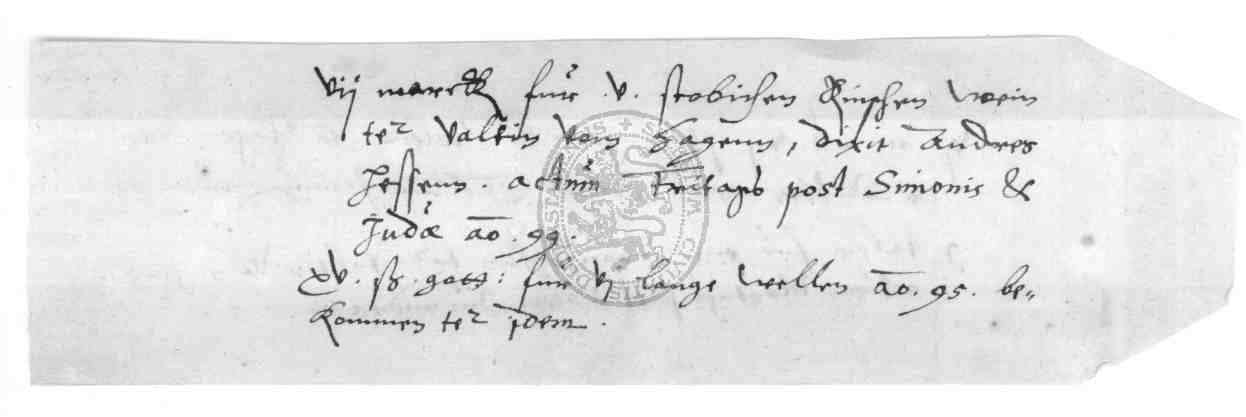 vij marck fur .v. stobichen Rinschen wein
ter Valtin vom Hagenn, dixit Andres
Hessenn. actum Freitags post Simonis &
Judæ ao. 99.
xv. ß. gott: fur vj lange wellen ao. 95. be„
kommen ter idem.